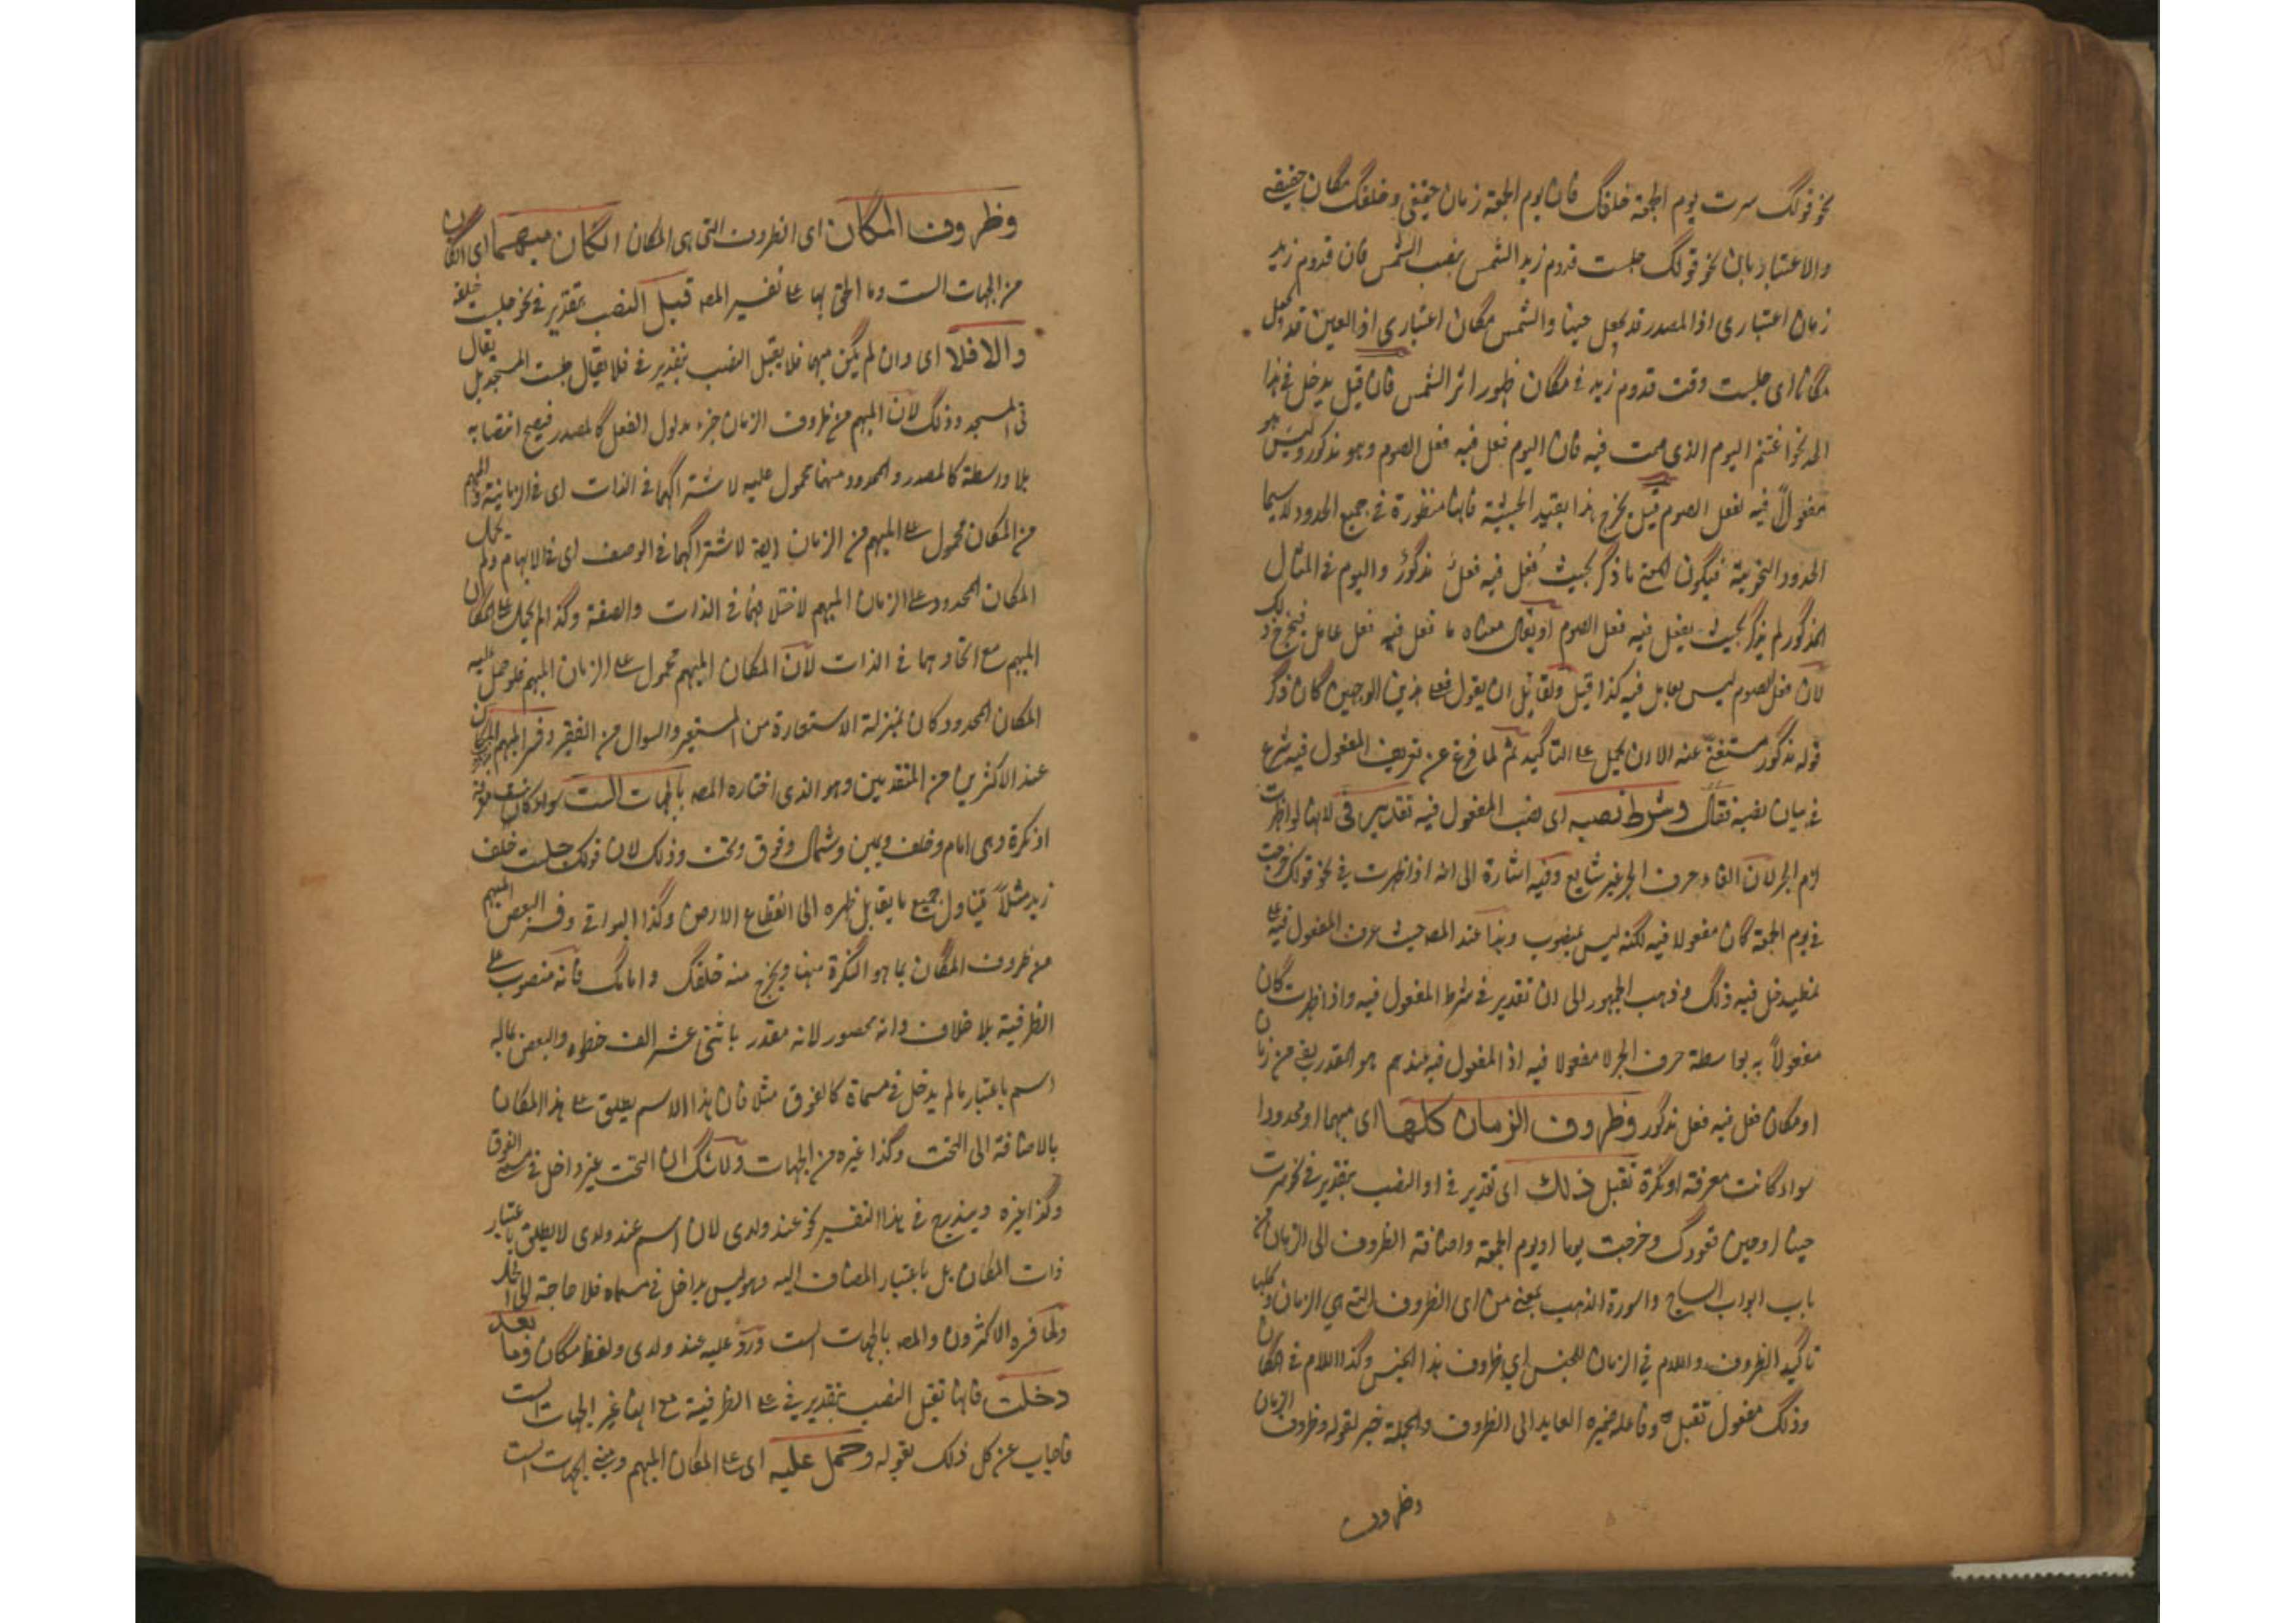 نحو قولك سرت يوم الجمعة خلفك فان يوم الجمعة زمان حقيقي وخلفك مكان حقيقي
والاعتباريان نحو قولك جلست قدوم زيد الشمس بنصب الشمس فان قدوم زيد
زمان اعتبارى اذ المصدر قد يجعل حينا والشمس مكان اعتبارى اذ العين قد يجعل
مكانا اى جلست وقت قدوم زيد فى مكان ظهور اثر الشمس فان قيل يدخل فى هذا
الحد نحو اغتنم اليوم الذى صمت فيه فان اليوم فعل فيه فعل الصوم وهو مذكور وليس هو
مفعولاً فيه لفعل الصوم قيل يخرج هذا بقيد الحيثية فانها منظورة فى جميع الحدود لاسيما
الحدود النحوية فيكون المعنى ما ذكر بحيث فُعل فيه فعلٌ مذكورٌ واليوم فى المثال
المذكور لم يذكر بحيث يفعل فيه فعل الصوم او يقال معناه ما فعل فيه فعل عامل فيخرج ذلك
لان فعل الصوم ليس بعامل فيه كذا قيل ولقائل ان يقول فعلى هذين الوجهين كان ذكر
قوله مذكور مستغنى عنه الا ان يحمل على التاكيد ثم لما فرغ عن تعريف المفعول فيه شرع
فى بيان نصبه فقال وشرط نصبه اى نصب المفعول فيه تقدير فى لانها لو اظهرت
لزم الجر لان الغاء حرف الجر غير شايع وفيه اشارة الى انه اذا ظهرت فى نحو قولك خرجت
فى يوم الجمعة كان مفعولا فيه لكنه ليس بمنصوب وهذا عند المصه حيث عرف المفعول فيه
فيه ذلك وذهب الجمهور الى ان تقدير فى شرط المفعول فيه واذا ظهرت كان
مفعولاً به بواسطة حرف الجر لا مفعولا فيه اذ المفعول فيه عندهم هو المقدر بفى من زمان
او مكان فعل فيه فعل مذكور وظروف الزمان كلها اى مبهما او محدودا
سواء كانت معرفة او نكرة تقبل ذلك اى تقدير فى او النصب بتقدير فى نحو سرت
حينا او حين قعودك وخرجت يوما او يوم الجمعة واضافة الظروف الى الزمان من
باب ابواب الساج واسورة الذهب بمعنى من اى الظروف التى هى الزمان وكلها
تاكيد الظروف واللام فى الزمان للجنس اى ظروف هذا الجنس وكذا اللام فى المكان
وذلك مفعول تقبل وفاعله ضميره العايد الى الظروف والجملة خبر لقوله وظروف الزمان
وظروف
وظروف المكان اى الظروف التى هى المكان ان كان مبهما اى المكان
من الجهات الست وما الحق بها على تفسير المصه قبل النصب بتقدير فى نحو جلست خلفه
والا فلا اى وان لم يكن مبهما فلا يقبل النصب بتقدير فى فلا يقال جلست المسجد بل يقال
فى المسجد وذلك لان المبهم من ظروف الزمان جزء مدلول الفعل كالمصدر فيصح انتصابه
بلا واسطة كالمصدر والمحدود منهما محمول عليه لاشتراكهما فى الذات اى فى الزمانية والمبهم
من المكان محمول على المبهم من الزمان لاشتراكهما فى الوصف اى فى الابهام ولم يحمل
المكان المحدود على الزمان المبهم لاختلافهما فى الذات والصفة وكذا لم يحمل على المكان
المبهم مع اتحادهما فى الذات لان المكان المبهم محمول على الزمان المبهم فلو حمل عليه
المكان المحدود كان بمنزلة الاستعارة من المستعير والسوال من الفقير وفسر المبهم المكان
عند الاكثرين من المتقدمين وهو الذى اختاره المصه بالجهات الست سواء كان معرفة
او نكرة وهى امام وخلف ويمين وشمال وفوق وتحت وذلك لان قولك جلست خلف
زيد مثلاً يتناول جميع ما يقابل ظهره الى انقطاع الارض وكذا البواقى وفسر البعض المبهم
من ظروف المكان بما هو النكرة منها ويخرج منه خلفك وامامك فانه منصوب على
الظرفية بلا خلاف وانه محصور لانه مقدر باثنى عشر الف خطوه والبعض بما له
اسم باعتبار ما لم يدخل فى مسماة كالفوق مثلا فان هذا الاسم يطلق على هذا المكان
بالاضافة الى التحت وكذا غيره من الجهات ولا شك ان التحت غير داخل فى مسمى الفوق
وكذا غيره ويندرج فى هذا التفسير نحو عند ولدى لان اسم عند ولدى لا يطلق باعتبار
ذات المكان بل باعتبار المضاف اليه وهو ليس بداخل فى مسماه فلا حاجة الى الحمل
ولما فسره الاكثرون والمصه بالجهات الست ورد عليه عند ولدى ولفظ مكان وما بعد
دخلت فانها تقبل النصب بتقدير فى على الظرفية مع انها غير الجهات الست
فاجاب عن كل ذلك بقوله وحمل عليه اى على المكان المبهم وهى الجهات الست